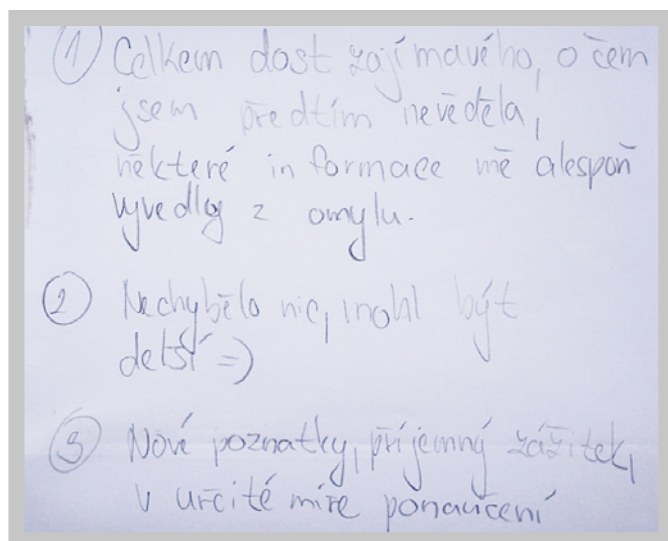 ① Celkem dost zajímavého, o čem
jsem předtím nevěděla,
některé informace mě alespoň
vyvedly z omylu.
② Nechybělo nic, mohl být
delší =)
③ Nové poznatky, příjemný zážitek,
v určité míře ponaučení